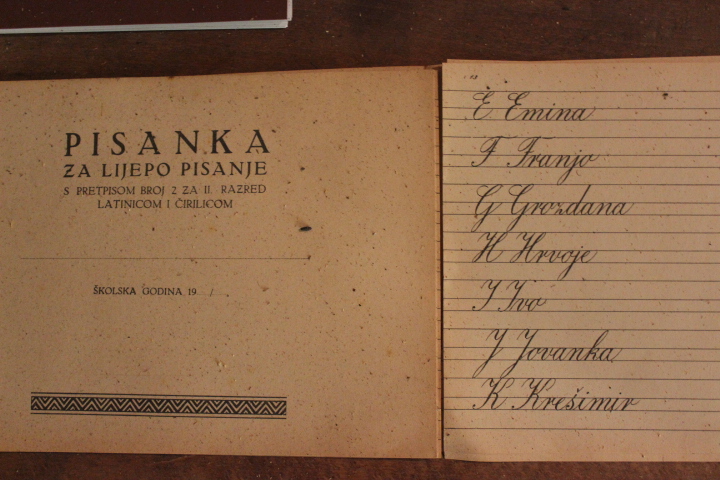 PISANKA
ZA LIJEPO PISANJE
S PRETPISOM BROJ 2 ZA II. RAZRED
LATINICOM I ĆIRILICOM
ŠKOLSKA GODINA 19 /
E Emina
F Franjo
G Grozdana
H Hrvoje
I Ivo
J Jovanka
K Krešimir